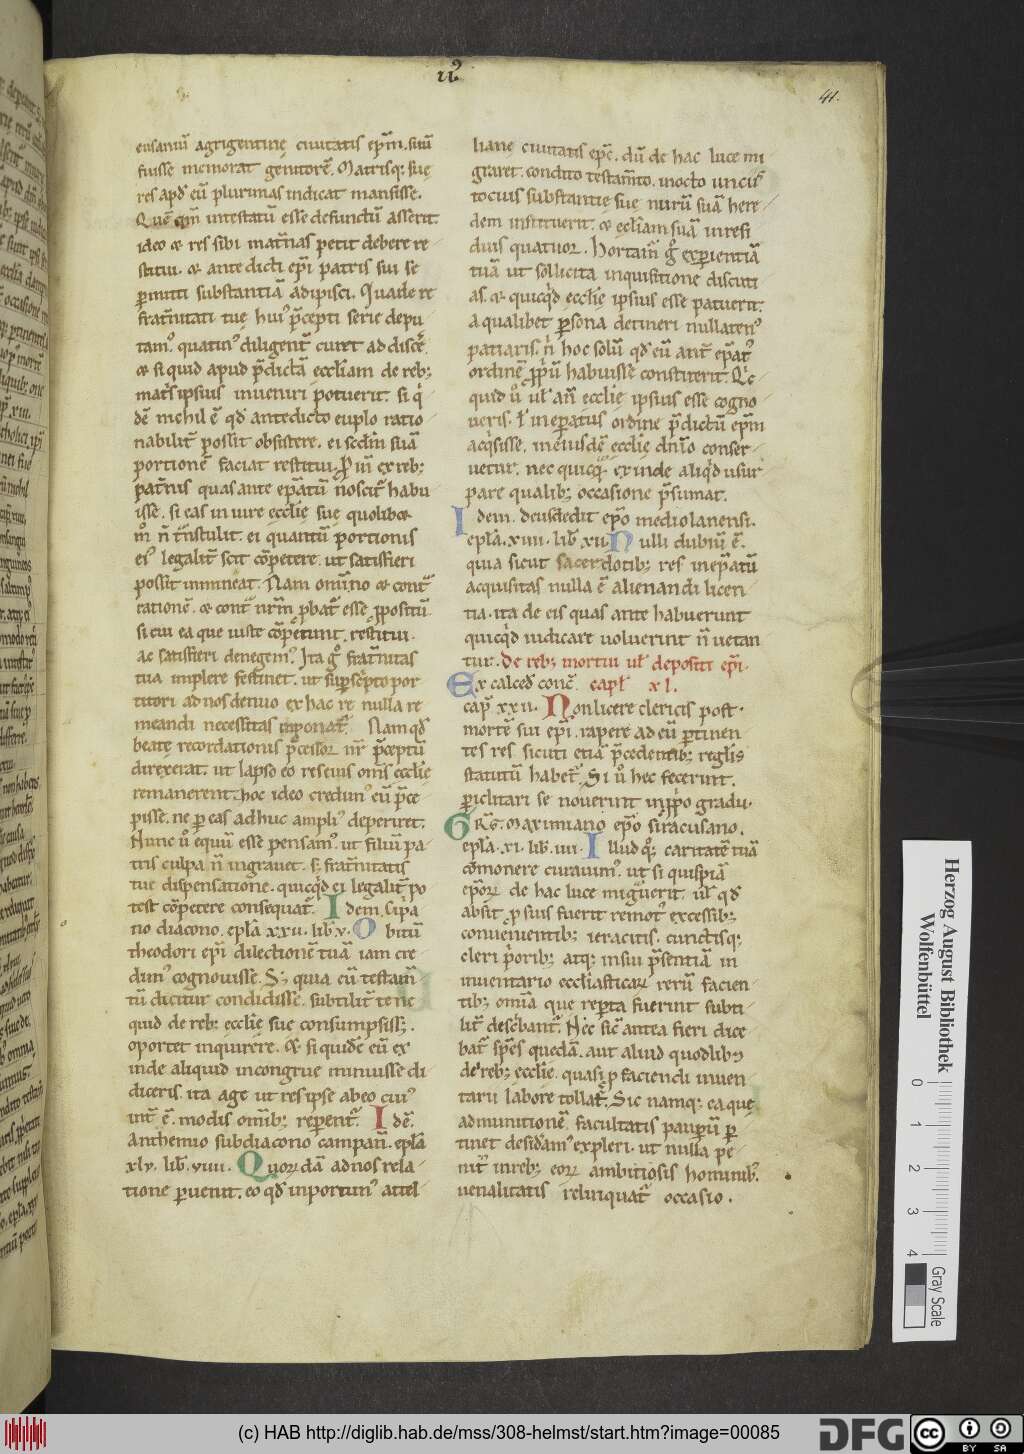 41.
eusaniũ agrigentinę ciuitatis ep̃m. suũ
fuisse memorat genitorẽ. Matrisq; suę
res apď eũ plurimas indicat mansisse.
Quẽ qm̃ intestatũ esse defunctũ asserit.
ideo & res sibi mat̃nas petit debere re
stitui. & ante dicti ep̃i patris sui se
ꝑmitti substantiã adipisci. Qua de re
frat̃nitati tuę huiꝰ p̃cepti serie depu
tamꝰ. quatinꝰ diligent̃ curet ad discẽ.
& si quid apud p̃dictã eccl̃iam de reb;
mat̃s ipsius inueniri potuerit. si q̇
dẽ nichil ẽ qď antedicto euplo ratio
nabilit̃ possit obsistere. ei scďm suã
portionẽ faciat restitui. P̃ iñ ex reb;
pat̃nis quas ante ep̃atũ ñoscit̃ habu
isse. si eas in iure eccl̃ię suę quolibet
m̊ ñ t̃nstulit. ei quantũ portionis
eiꝰ legalit̃ scit cõpetere. ut satisfieri
possit immineat. Nam omĩno & cont̃
rationẽ. & cont̃ nr̃m ꝓbat̃ esse ꝓpositũ.
si cui ea que iuste cõpetunt. restitui.
ac satisfieri denegemꝰ. Ita g̊ frat̃nitas
tua implere festinet. ut suꝑsc̃pto por
titori ad nos denuo ex hac re nulla re
meandi necessitas inponat̃. Nam qď
beatę recordationis p̃cessor nr̃ p̃ceptũ
direxerat. ut lapso eo res eius om̃s eccl̃ię
remanerent. hoc ideo credimꝰ eũ p̃ce
pisse. ne ꝑ eas adhuc ampliꝰ deperiret.
Nunc ů equũ esse pensamꝰ. ut filiũ pa
tris culpa ñ ingrauet. s; frat̃nitatis
tuę dispensatione. quicq̇d ei legalit̃ po
test cõpetere consequat̃. Idem. Cip̃a
no diacono. epl̃a xxu. lib̃. v. Obitũ
theodori ep̃i dilectionẽ tuã iam cre
dimꝰ cognouisse. S; quia cũ testam̃
tũ dicitur condidisse. subtilit̃ te ne
quid de reb; eccl̃ię suę consumpsiss;.
oportet inquirere. Et si quidẽ eũ ex
inde aliquid incongrue minuisse di
diceris. ita age ut res ipse ab eo cuiꝰ
int̃ ẽ. modis om̃ib; reperent̃. Idẽ.
anthemio subdiacono campañ. epl̃a
xlv. lib̃. viiii. Quordã ad nos rela
tione ꝑuenit. eo qď inportunꝰ attel
lianę ciuitatis ep̃c. dũ de hac luce mi
graret. condito testam̃to. in octo unciis
tocius substantię suę nurũ suã here
dem instituerit. & eccl̃iam suã in resi
duis quatuor. Hortam̃ g̊ experientiã
tuã ut sollicita inquisitione discuti
as. & quicq̇d eccl̃ię ipsius esse patuerit.
a qualibet ꝑsona detineri nullatenꝰ
patiaris. ñ hoc solũ qď eũ ant̃ ep̃atꝰ
ordinẽ ꝓp̃ũ habuisse constiterit. Q̃c
quid ů ul̃ añ eccl̃ię ipsius esse cogno
ueris. ł in ep̃atus ordine p̃dictũ ep̃m
acq̇sisse. in eiusdẽ eccl̃ię dñio conser
uetur. nec quicq̃ exinde aliq̇d usur
pare qualib; occasione p̃sumat.
Idem. deusdedit ep̃o mediolanensi.
epl̃a. xiiii. lib̃. xii. Nulli dubiũ ẽ.
quia sicut sacerdotib; res in ep̃atũ
acquisitas nulla ẽ alienandi licen
tia. ita de eis quas ante habuerunt
quicq̇d iudicare uoluerint ñ uetan
tur. De reb; mortui ul̃ depositi ep̃i.
Ex calceď conc̃. capl̃ xl.
cap̃ xxii. Non licere clericis post
mortẽ sui ep̃i. rapere ad eũ ꝑtinen
tes res sicuti etiã p̃cedentib; regl̃is
statutũ habet̃. Si ů hec fecerint.
ꝑiclitari se nouerint in ꝓp̃o gradu.
GRG̃. Maximiano ep̃o siracusano.
epl̃a. xi. lib̃. iiii. Illud q; caritatẽ tuã
cõmonere curauimꝰ. ut si quispiã
ep̃or de hac luce mig̃uerit. ul̃ qď
absit. ꝓ suis fuerit remotꝰ excessib;
conuenientib; ieracitis. cunctisq;
cleri p̃orib; atq; in sui p̃sentiã in
inuentario eccl̃iasticar rerũ facien
tib; om̃ia que rep̃ta fuerint subti
lit̃ desc̃bant̃. Nec sic̃ antea fieri dice
bat̃ sp̃es quedã. aut aliud quodlib;
de reb; eccl̃ię. quasi ꝓ faciendi inuen
tarii labore tollat̃. Sic namq; ea quę
ad munitionẽ facultatis pauꝑũ ꝑ
tinet desidamꝰ expleri. ut nulla pe
nit̃ in reb; eor ambitiosis hominib;
uenalitatis relinquat̃ occasio.
Herzog August Bibliothek
Wolfenbüttel
0 1 2 3 4
Gray Scale
(c) HAB http://diglib.hab.de/mss/308-helmst/start.htm?image=00085
DFG
cc BY SA